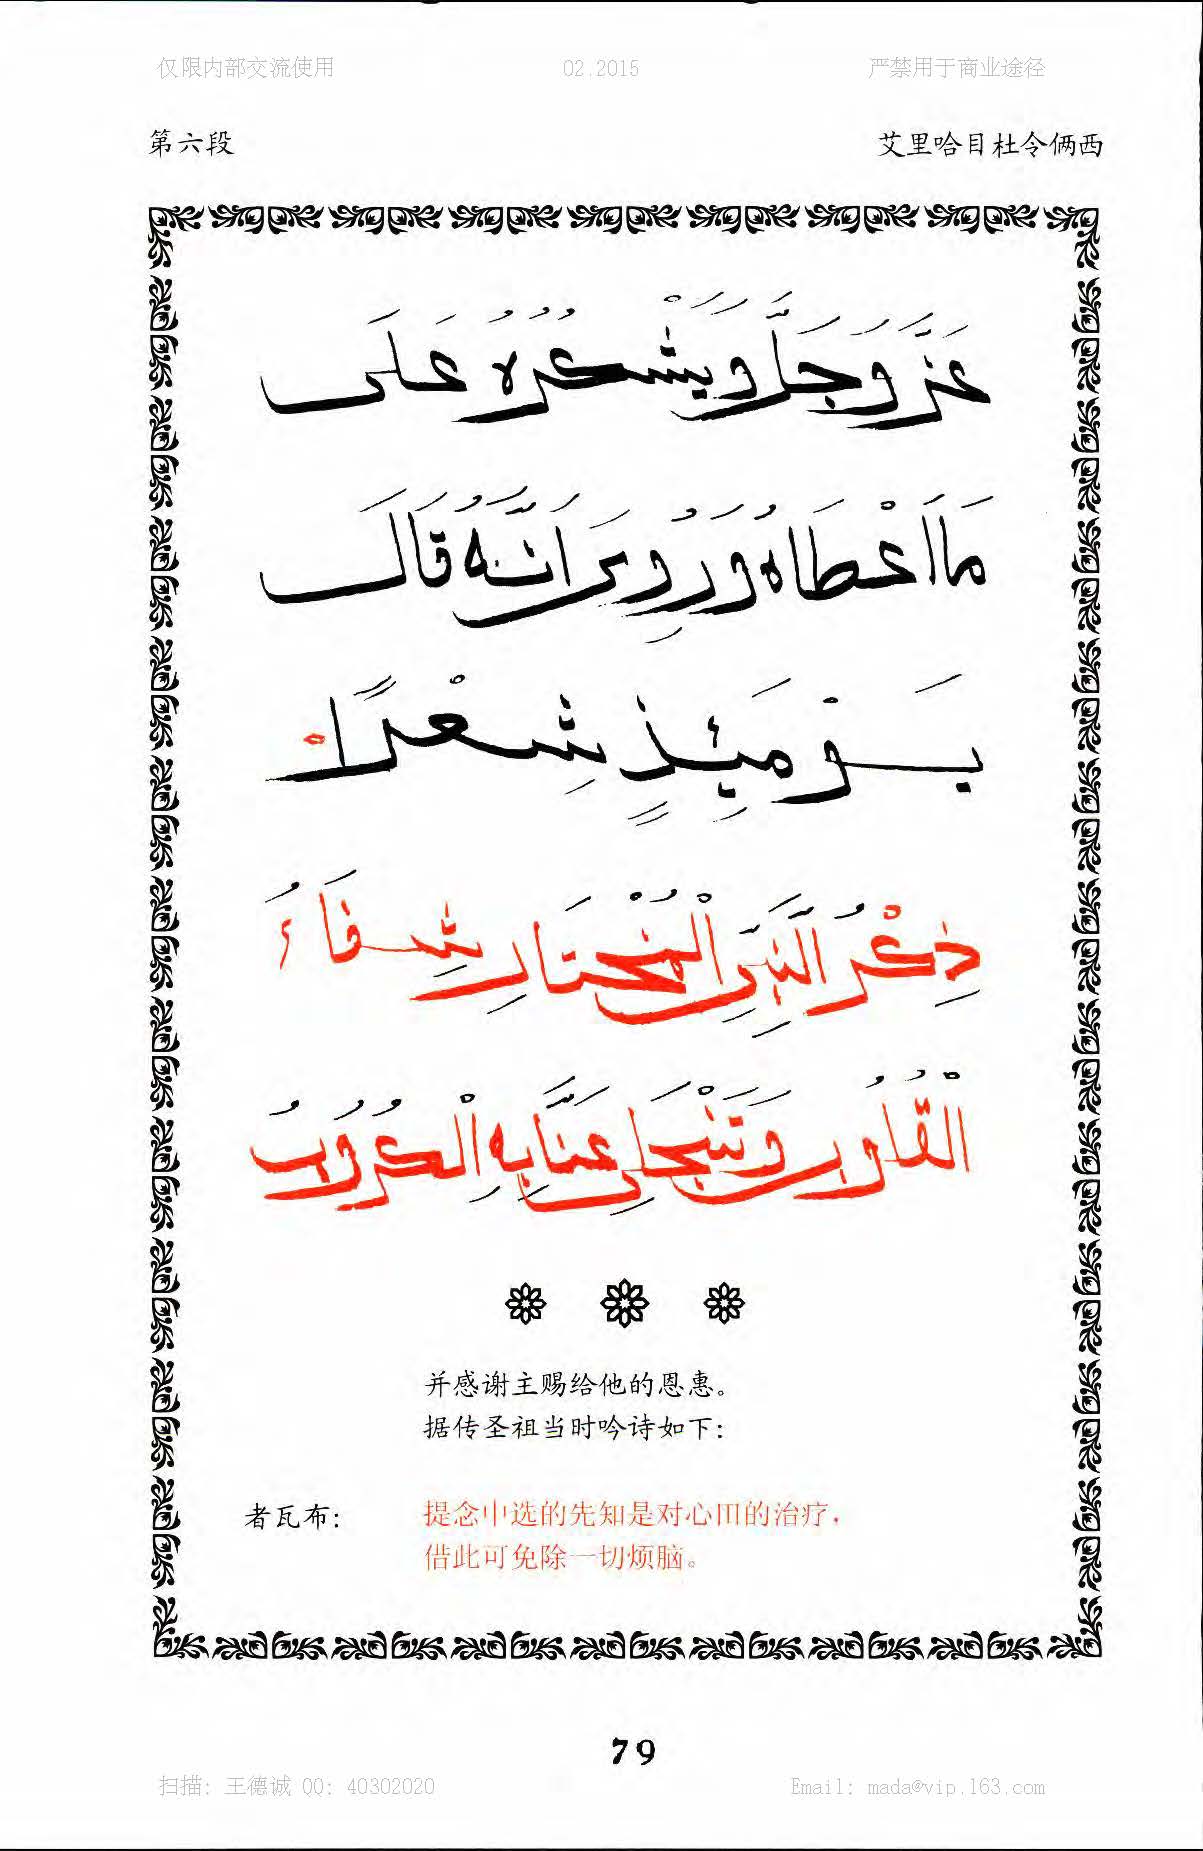 仅限内部交流使用 02.2015 严禁用于商业途径
第六段 艾里哈目杜令俩西
عَزَّ وَجَلَّ وَيَشْكُرُهُ عَلَى
مَا اَعْطَاهُ وَرُوِىَ اَنَّهُ قَالَ
يَوْمَئِذٍ شِعْرًا
ذِكْرُ النَّبِىِّ الْمُخْتَارِ شِفَاءُ
الْقُلُوبِ وَتَنْجَلِى عَنَّا بِهِ الْكُرُوبُ
并感谢主赐给他的恩惠。
据传圣祖当时吟诗如下：
者瓦布： 提念中选的先知是对心田的治疗，
借此可免除一切烦脑。
79
扫描: 王德诚 QQ: 40302020 Email: mada@vip.163.com